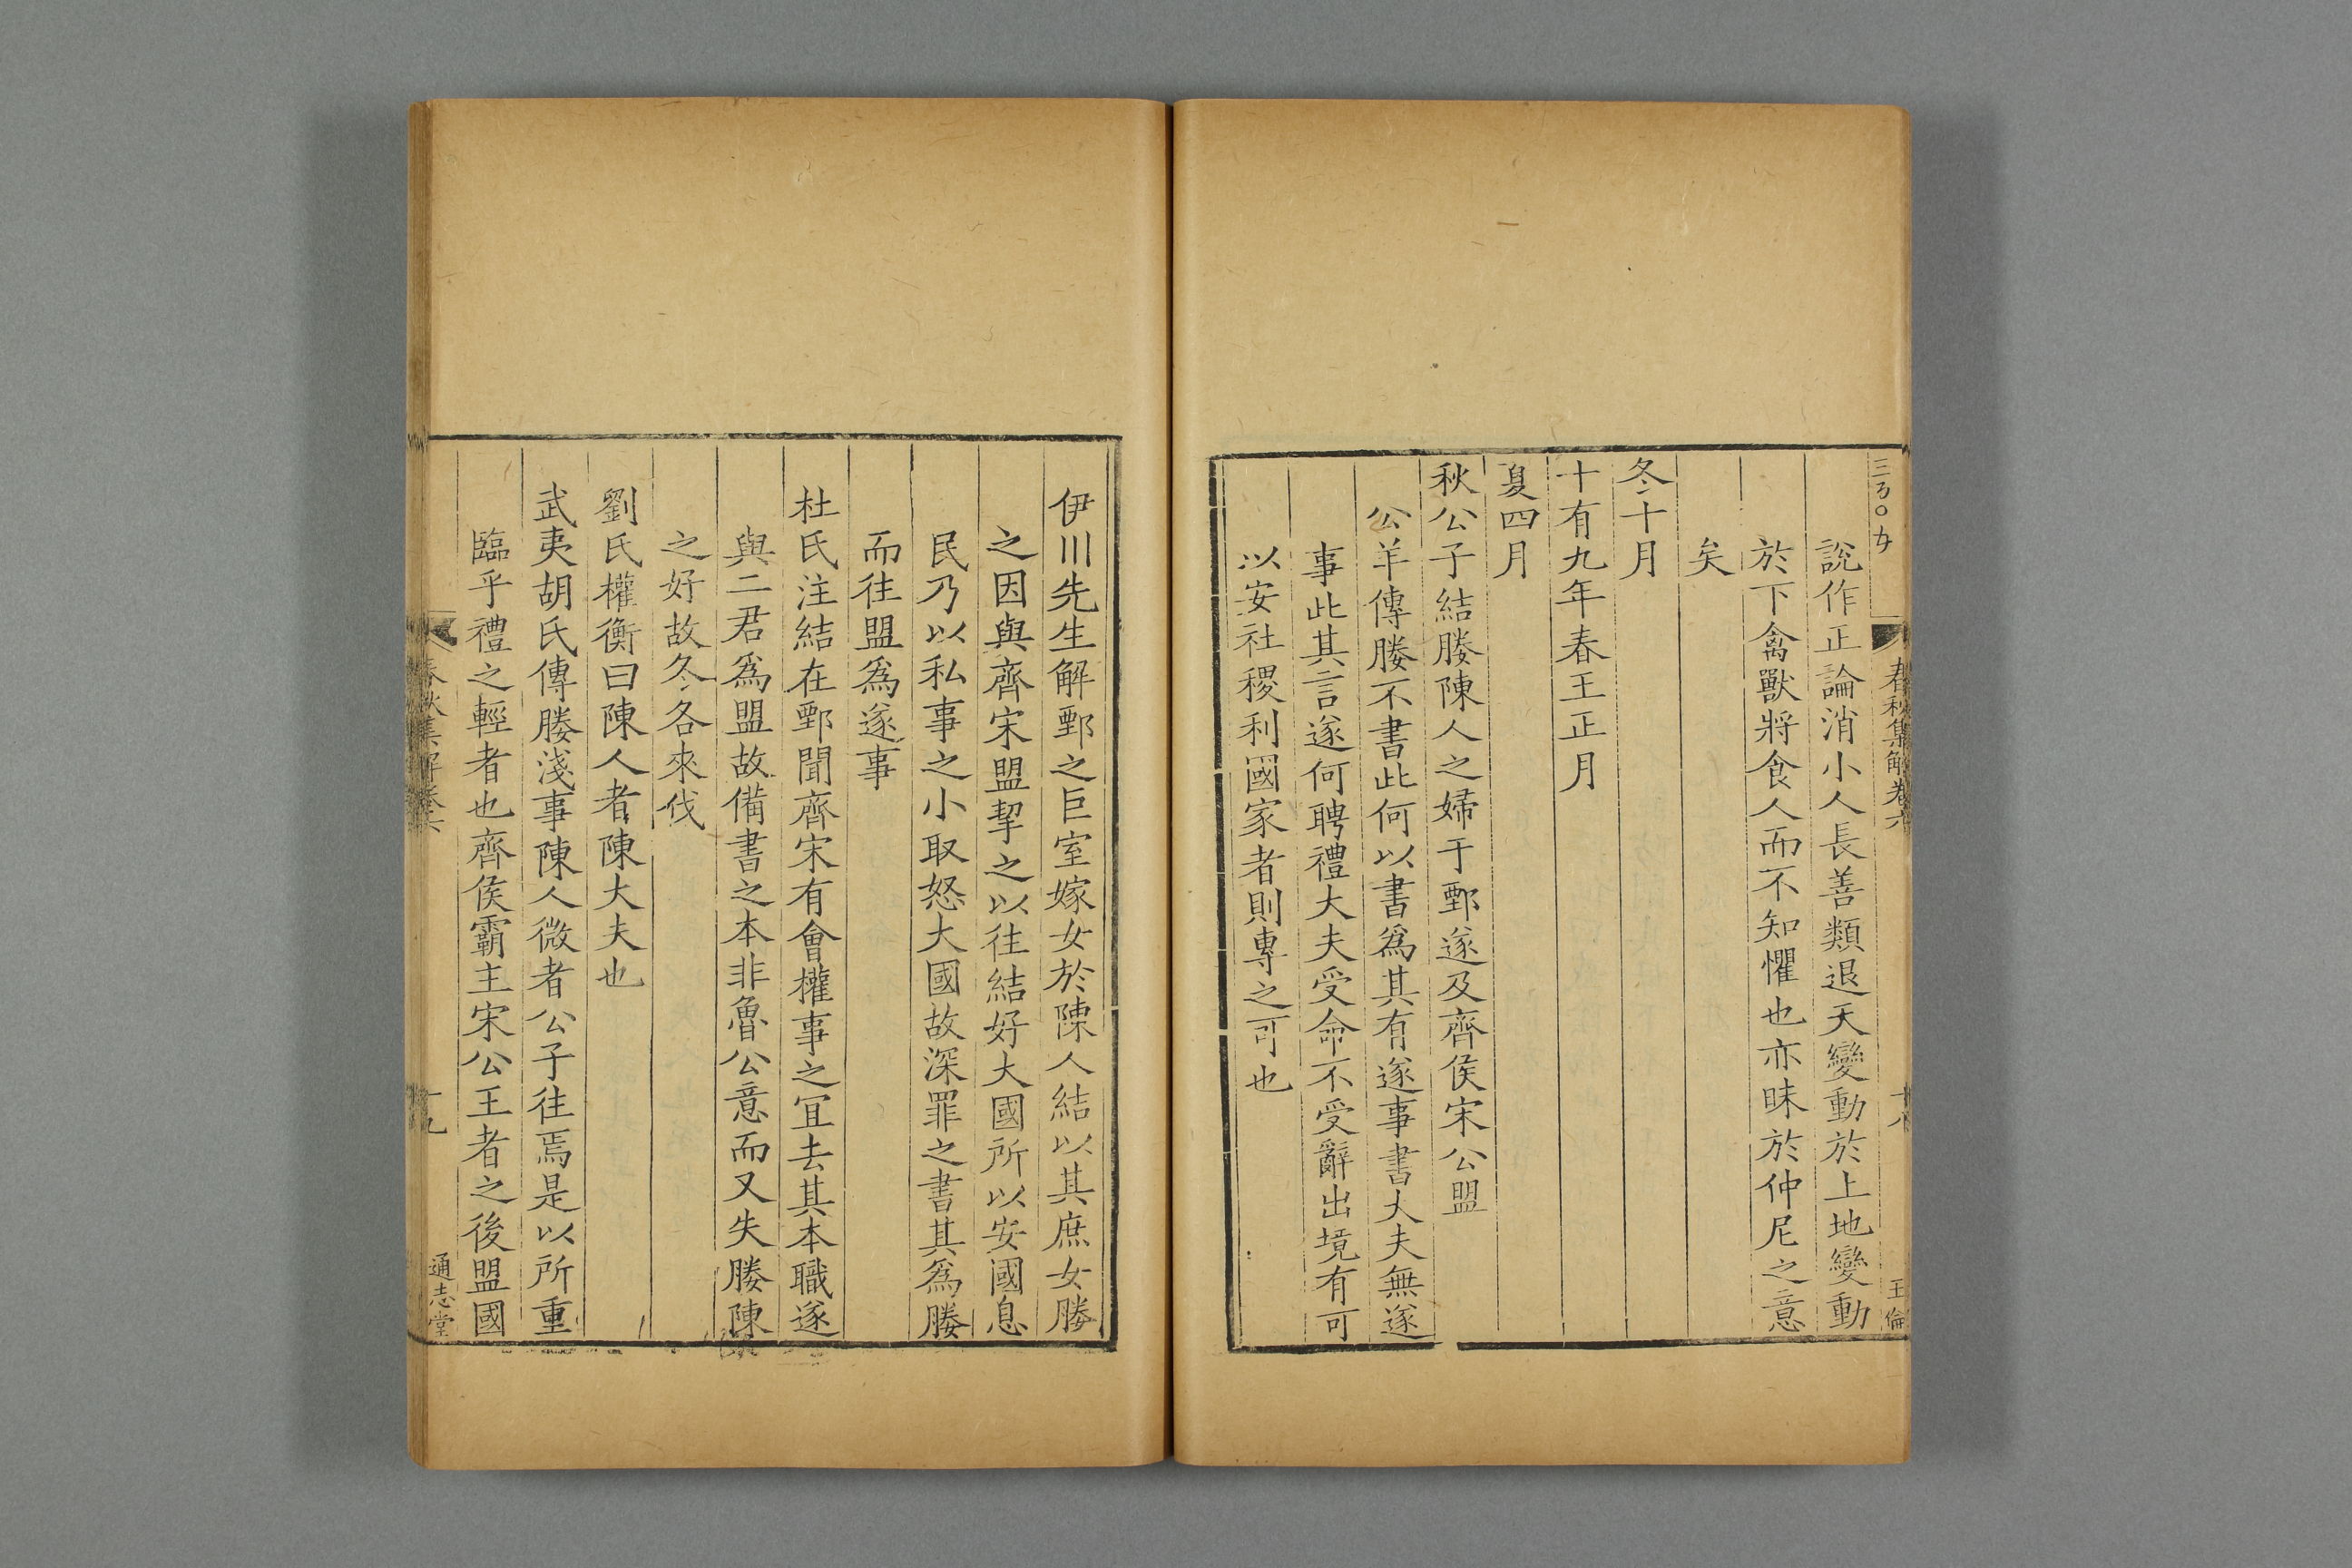 春秋集解卷六
十八
王倫
說作正論消小人長善類退天變動於上地變動
於下禽獸將食人而不知懼也亦昧於仲尼之意
矣
冬十月
十有九年春王正月
夏四月
秋公子結媵陳人之婦于鄄遂及齊侯宋公盟
公羊傳媵不書此何以書爲其有遂事書大夫無遂
事此其言遂何聘禮大夫受命不受辭出境有可
以安社稷利國家者則專之可也
伊川先生解鄄之巨室嫁女於陳人結以其庶女媵
之因與齊宋盟挈之以往結好大國所以安國息
民乃以私事之小取怒大國故深罪之書其爲媵
而往盟爲遂事
杜氏注結在鄄聞齊宋有會權事之宜去其本職遂
與二君爲盟故備書之本非魯公意而又失媵陳
之好故冬各來伐
劉氏權衡曰陳人者陳大夫也
武夷胡氏傳媵淺事陳人微者公子往焉是以所重
臨乎禮之輕者也齊侯霸主宋公王者之後盟國
春秋集解卷六
十九
通志堂